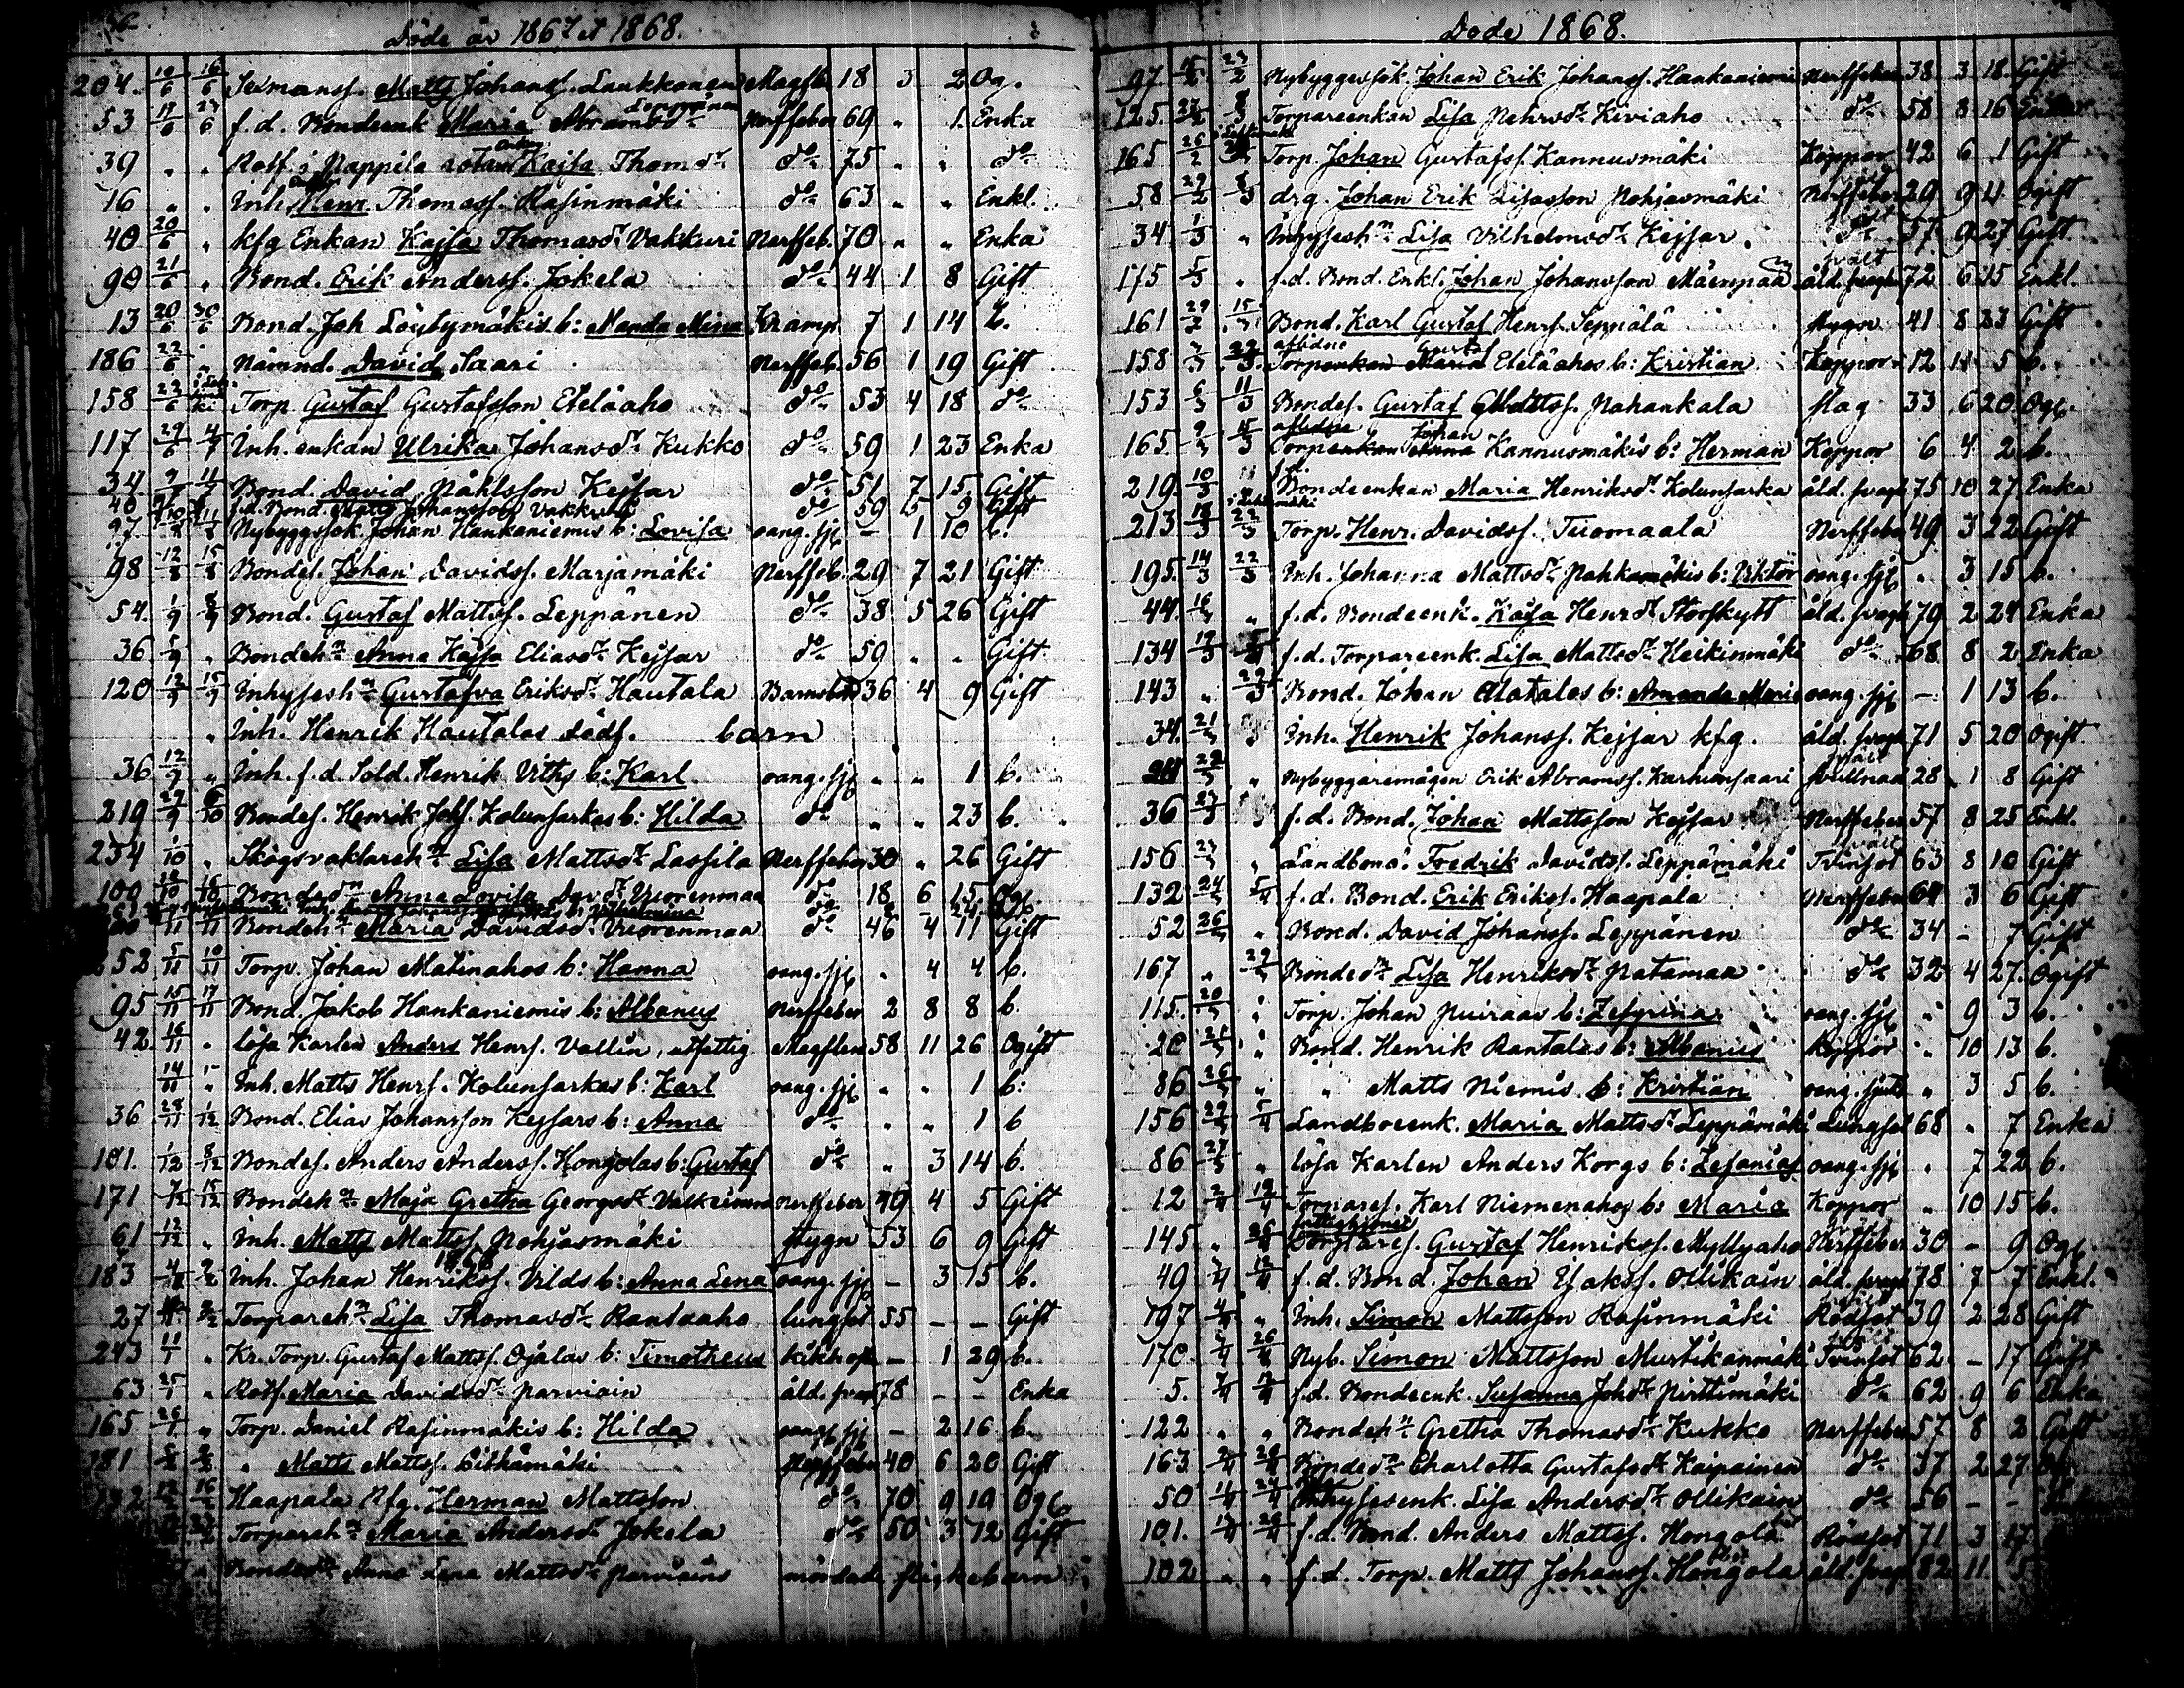 Döde år 1867 et 1868.
204. 10/6 16/6 Sexmanss. Matts Johanss. Laukkonen Magfeb. 18 3 2 Og.
Leppänen
53 17/6 23/6 f.d. Bondeenk Maria Abramsdr Nerffeber 69 " 1. Enka
39 " " Rotf. i Nappila Enkan Kajsa Thomdr do 75 " " do
16 " " Inh. Henr. Thomass. Rasinmäki do 63 " " Enkl.
40 20/6 " kfg Enkan Kajsa Thomasdr Vakkuri Nerffeb. 70 " " Enka
90 21/6 " Bond. Erik Anderss. Jokela do 44 1 8 Gift
13 20/6 30/6 Bond. Joh Löytymäkis b: Manda Mina Kramp 7 1 14 b.
186 22/6 " Nämnd. David Saari Nerffeb. 56 1 19 Gift
158 22/6 Torp Gustaf Gustafsson Eteläaho do 53 4 18 do
117 29/6 4/7 Inh. enkan Ulrika Johansdr Kukko do 59 1 23 Enka
34. Bond. David Påhlsson Kejsar do 51 7 15 Gift
40 f.d. Bond. Matts Johansson Vakkuri do 59 5 9 Gift
97 Nybyggssok. Johan Hankaniemis b: Lovisa oang. sjd – 1 10 b.
98 12/8 15/8 Bondes. Johan Davidss. Marjamäki Nerffeb. 29 7 21 Gift
54. 1/9 8/9 Bond. Gustaf Mattss. Leppänen do 38 5 26 Gift
36 5/9 " Bondehn Anna Kajsa Eliasdr Kejsar do 59 " " Gift
120 12/9 15/9 Inhyseshn Gustafva Eriksdr Hautala Barnsbörd 36 4 9 Gift
" Inh. Henrik Hautalas dödf. barn
36 12/9 " Inh. f.d. Sold. Henrik Viths b: Karl oang. sjd " " 1 b.
219 29/9 6/10 Bondes. Henrik Johs. Kolunsarkas b: Hilda do " " 23 b.
234 1/10 " Skogsvaktarehn Lisa Mattsdr Lassila Nerffeber 30 " 26 Gift
100 Bondedn Anna Lovisa Davdr Vuorenmaa do 18 6 15 Og.
Bondehn Maria Davidsdr Vuorenmaa do 46 4 11 Gift
252 5/11 10/11 Torp. Johan Matinahos b: Hanna oang. sjd " 4 4 b.
95 15/11 17/11 Bond. Jakob Hankaniemis b: Albanus Nerffeber 2 8 8 b.
42 16/11 " lösa Karlen Anders Henrs. Vallin, utfattig Magflen 58 11 26 Ogift
14/11 " Inh. Matts Henrs. Kolunsarkas b: Karl oang. sjd " " 1 b:
36 28/11 1/12 Bond. Elias Johansson Kejsars b: Anna do " " 1 b
101. 1/12 8/12 Bondes. Anders Anderss. Hongolas b: Gustaf do " 3 14 b.
171 7/12 15/12 Bondehn Maja Gretha Georgsdr Valkeinen Nerffeber 49 4 5 Gift
61 12/12 " Inh. Matts Mattss. Pohjasmäki Stygn 53 6 9 Gift
1868
183 Inh. Johan Henrikss. Vilds b: Anna Lena oang. sjd – 3 15 b.
27 Torparehn Lisa Thomasdr Rantaaho lungsot 55 – – Gift
243 11/1 " Kr. Torp. Gustaf Mattss. Ojalas b: Timotheus kikhosta – 1 29 b.
63 25/1 " Rotf. Maria Davidsdr Parviain åld. svag 78 – – Enka
165 26/1 " Torp. Daniel Rasinmäkis b: Hilda oang. sjd – 2 16 b.
181 " Matts Mattss. Nerffeber 40 6 20 Gift
Haapala kfg. Herman Mattsson do 70 9 19 Og.
Torparehn Maria Andersdr Jokela do 50 3 12 Gift
" Bondedr Anna Lena Mattsdr Parviains mördade flickebarn
Döde 1868.
97. 23/2 Nybyggessok. Johan Erik Johanss. Hankaniemi Nerffeber 38 3 18 Gift
125. Torpareenkan Lisa Pehrsdr Kiviaho do 58 8 16 Enka
165 26/2 Torp. Johan Gustafss. Kannusmäki Koppor 42 6 1 Gift
58 29/2 8/3 drg. Johan Erik Lisasson Pohjasmäki Nerffeber 29 9 11 Ogift
34 1/3 " Inhyseshn Lisa Vilhelmsdr Kejsar. do 57 9 27 Gift
175 5/3 " f.d. Bond. Enkl. Johan Johansson Mäenpää åld. svagh 72 6 15 Enkl.
161 29/2 15/3 Bond. Karl Gustaf Henrs. Seppälä Stygn 41 8 23 Gift
aflidne Gustaf
158 Torpenkan Maria Eteläahos b: Kristian Koppor 12 11 5 b.
153 6/3 11/3 Bondes. Gustaf Mattss. Pahankala slag 33 6 20 Og.
aflidne Johan
165. 9/3 15/3 Torpenkan Anna Kannusmäkis b: Herman Koppor 6 4 2 b.
219. 10/3 f.d. Bondeenkan Maria Henriksdr Kolunsarka åld. svagh 75 10 27 Enka
213 22/3 Torp. Henr. Davidss. Tuomaala Nerffeber 49 3 22 Gift
195. 14/3 22/3 Inh. Johanna Mattsdr Pahkamäkis b: Viktor oang. sjd " 3 15 b.
44. 16/3 " f.d. Bondeenk. Kajsa Henrdr Storskytt åld. svagh 79 2 24 Enka
134 f.d. Torpareenk. Lisa Mattsdr Heikinmäki do 68 8 2 Enka
143 " 22/3 Bond. Johan Alatalos b: Amanda Maria oang. sjd – 1 13 b.
34. 21/3 Inh. Henrik Johanss. Kejsar kfg. åld. svagh 71 5 20 Ogift
22/3 " Nybyggaremågen Erik Abramss. Karhunsaari svullnad 28 1 8 Gift
36 23/3 f.d. Bond. Johan Mattsson Kejsar Nerffeber 57 8 25 Enkl.
156 23/3 " Landbond. Fredrik Davidss. Leppämäki Tvinsot 63 8 10 Gift
132 24/3 5/4 f.d. Bond. Erik Erikss. Haapala Nerffeber 64 3 6 Gift
52 26/3 " Bond. David Johanss. Leppänen do 34 – 7 Gift
167 " 29/3 Bondedn Lisa Henriksdr Patamaa do 32 4 27. Ogift
115. 20/3 " Torp. Johan Puiraas b: Zefyrina oang. sjd " 9 3 b.
20 21/3 " Bond. Henrik Rantalas b: Albanus Koppor " 10 13 b.
86 26/3 " " Matts Niemis b: Kristian oang. sjuk " 3 5 b.
156 27/3 5/4 Landboenk. Maria Mattsdr Leppämäki Lungsot 68 " 7 Enka
86 27/3 " lösa Karlen Anders Korgs b: Zefanias oang. sjd " 7 22 b.
12 2/4 12/4 Torpares. Karl Niemenahos b: Maria Koppor " 10 15 b.
fattighjonet
145 " 26/4 Torpares. Gustaf Henrikss. Myllyaho Nerffeber 30 – 9 Og.
49 12/4 f.d. Bond. Johan Esakss. Ollikain åld. svagh 78 7 7 Enkl.
197 4/4 " Inh. Simon Mattsson Rasinmäki Rödsot 39 2 28 Gift
170. 26/4 Nyb. Simon Mattsson Mustikanmäki Tvinsot 62 – 17 Gift
5. 7/4 12/4 f.d. Bondeenk. Susanna Johdr Pirttimäki do 62 9 6 Enka
122 " " Bondehn Gretha Thomasdr Kukko Nerffeber 57 8 2 Gift
163 Bondedn Charlotta Gustafsdr Kaipainen do 37 2 27
50 Inhysesenk. Lisa Andersdr Ollikain do 56 – –
101. f.d. Bond. Anders Mattss. Hongola Rödsot 71 3 17
102 " " f.d. Torp. Matts Johanss. Hongola åld. svagh 82 11